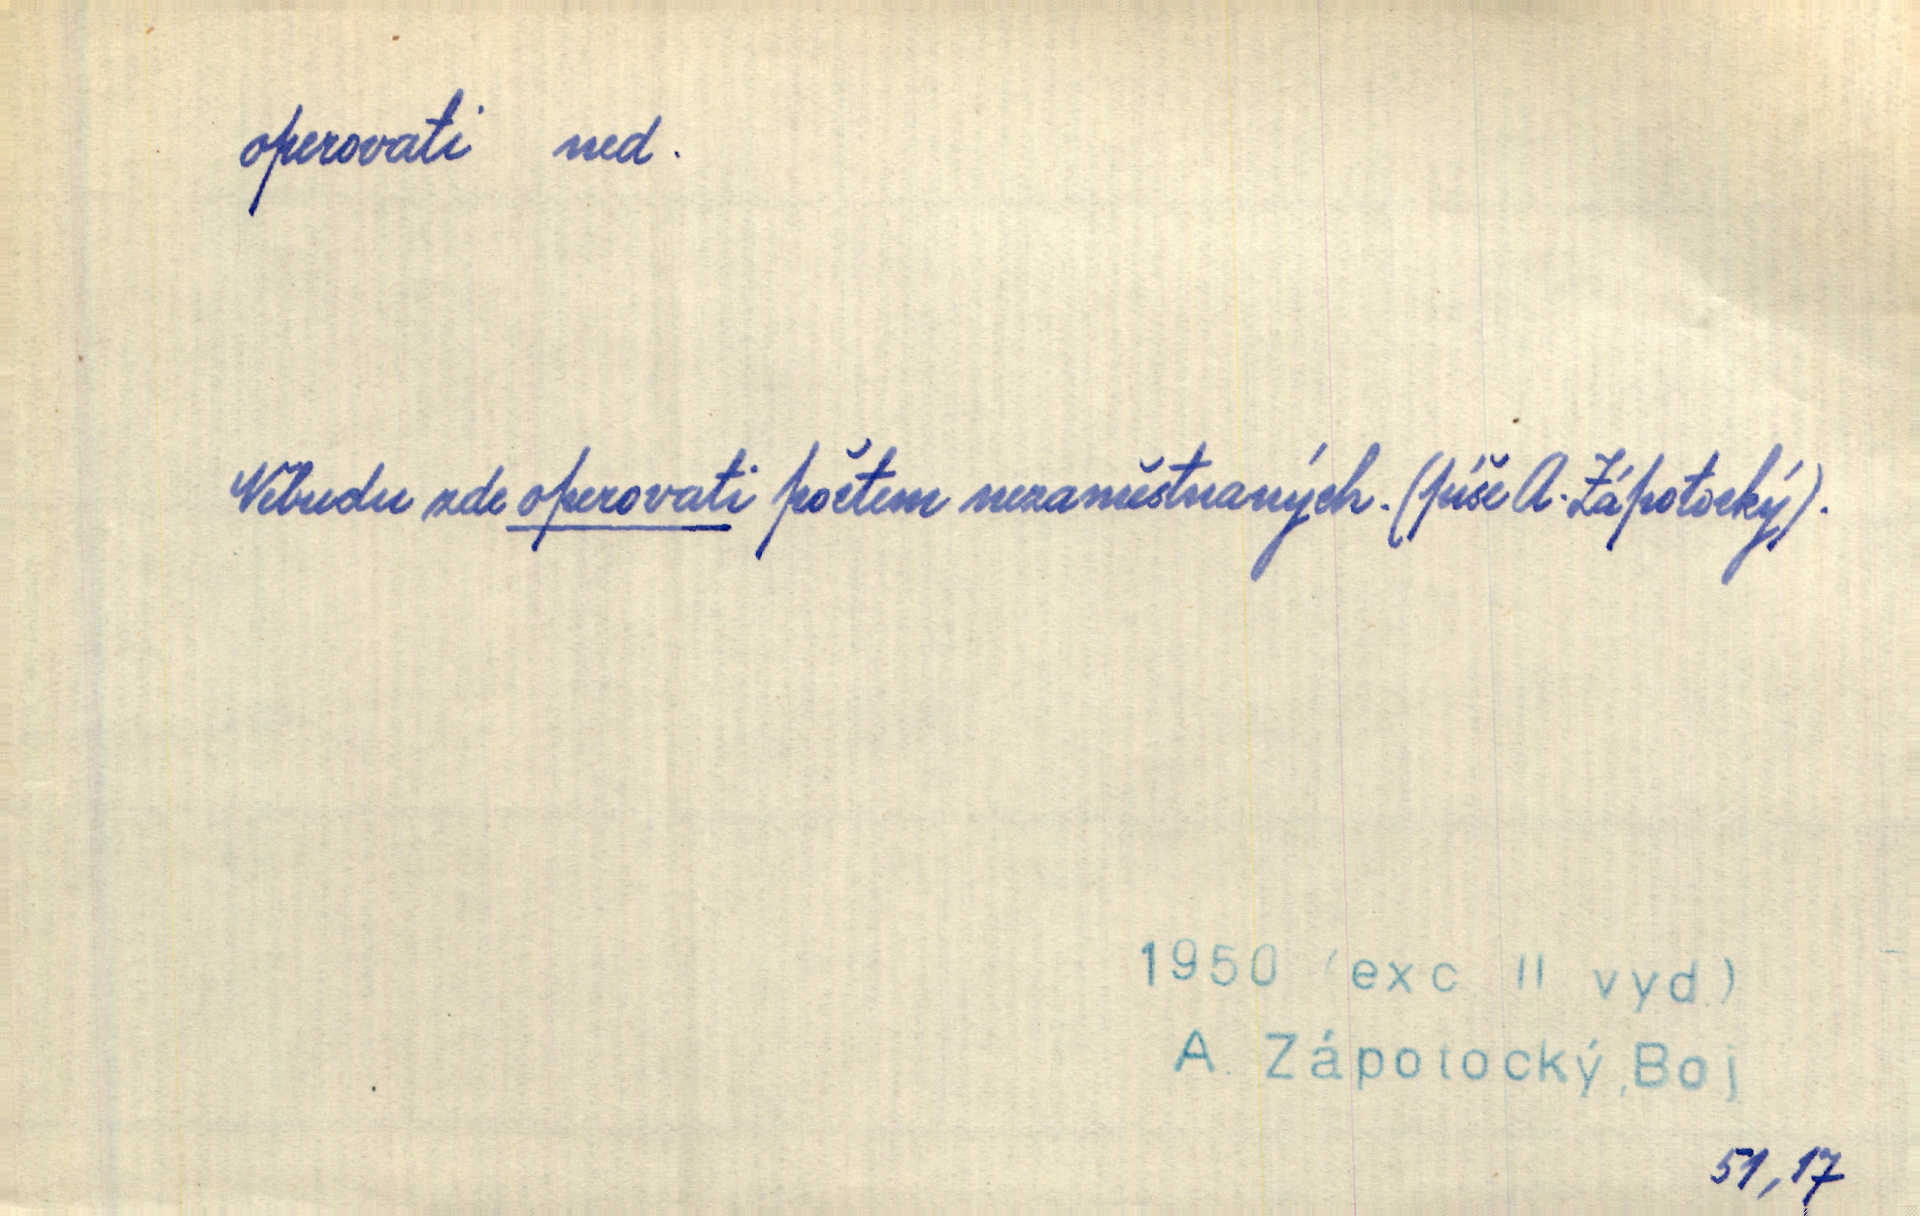 operovati ned.
Nebudu zde operovati počtem nezaměstnaných. (píše A. Zápotocký).
1950 (exc II vyd.)
A. Zápotocký, Boj
51,17